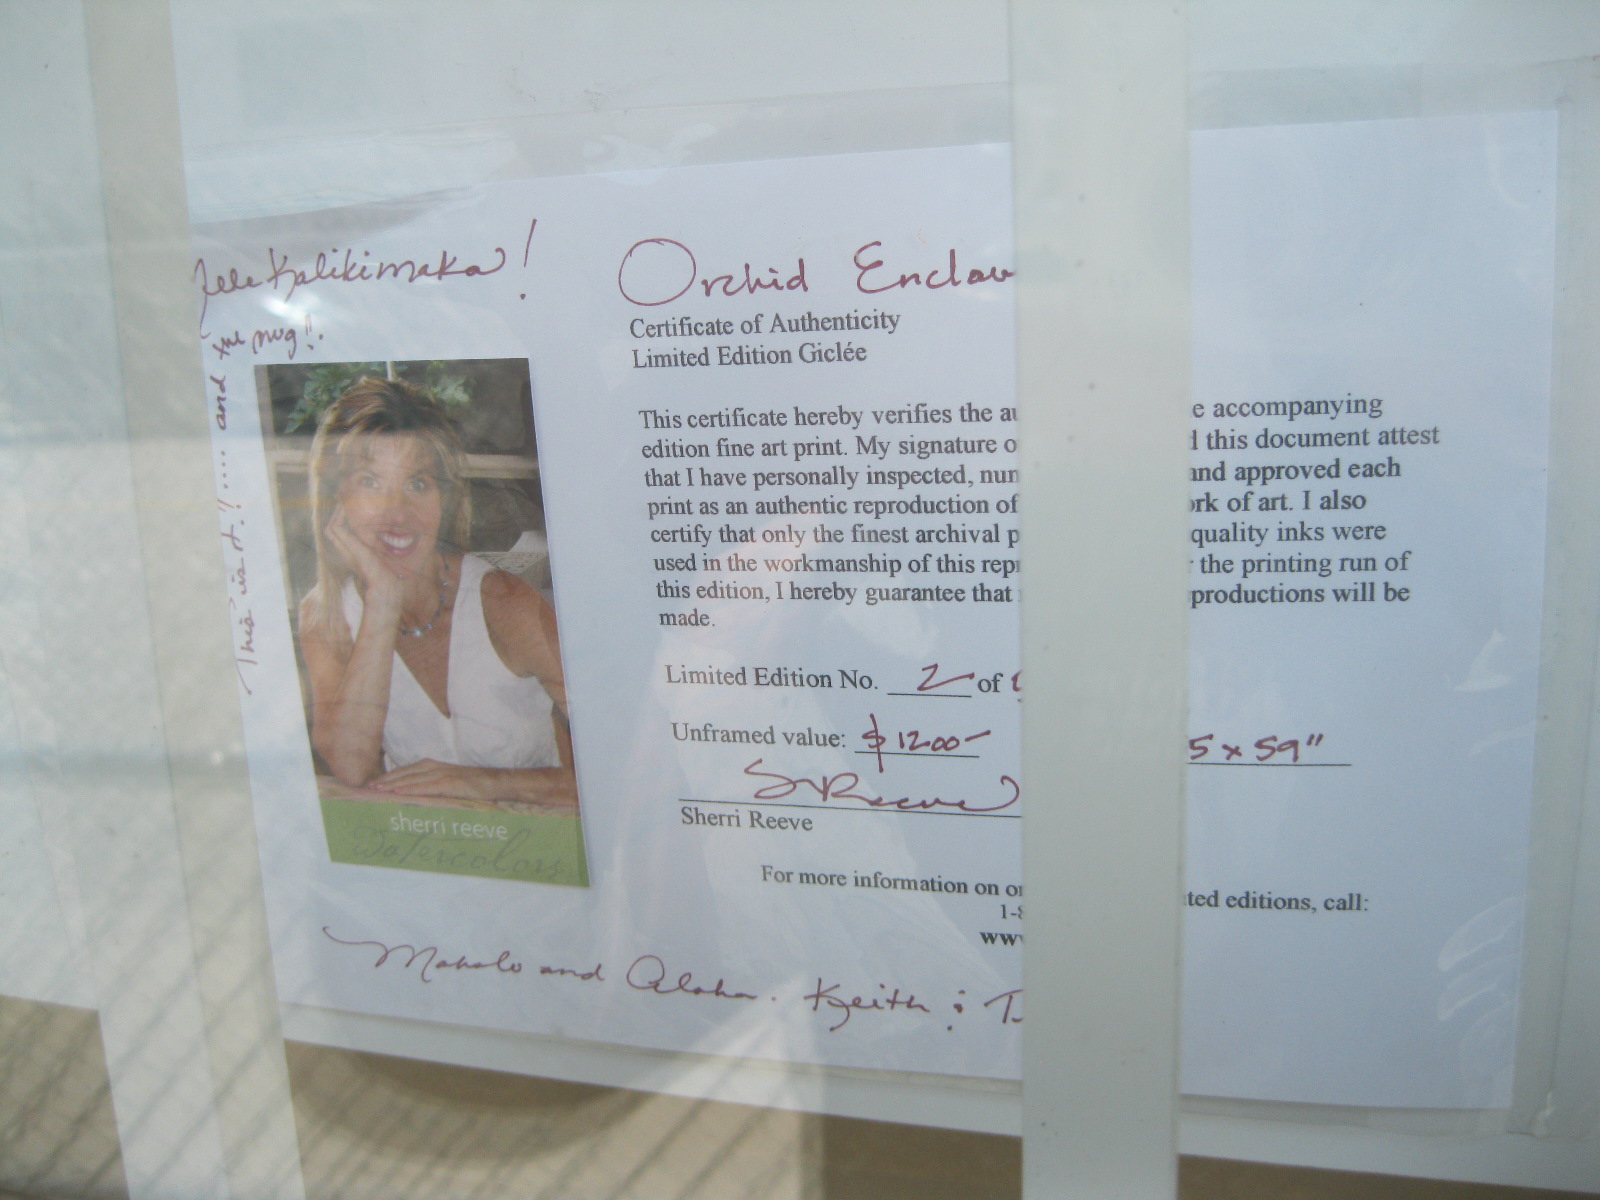 Mele Kalikimaka!
This is it!! .... and the mug!!
Orchid Enclav
Certificate of Authenticity
Limited Edition Giclée
This certificate hereby verifies the au e accompanying
edition fine art print. My signature o d this document attest
that I have personally inspected, num and approved each
print as an authentic reproduction of ork of art. I also
certify that only the finest archival p quality inks were
used in the workmanship of this rep the printing run of
this edition, I hereby guarantee that productions will be
made.
Limited Edition No. 2 of
Unframed value: $1200- 5 x 59"
S Reeve
Sherri Reeve
sherri reeve
watercolors
For more information on or ted editions, call:
1-8
www
Mahalo and Aloha. Keith & T